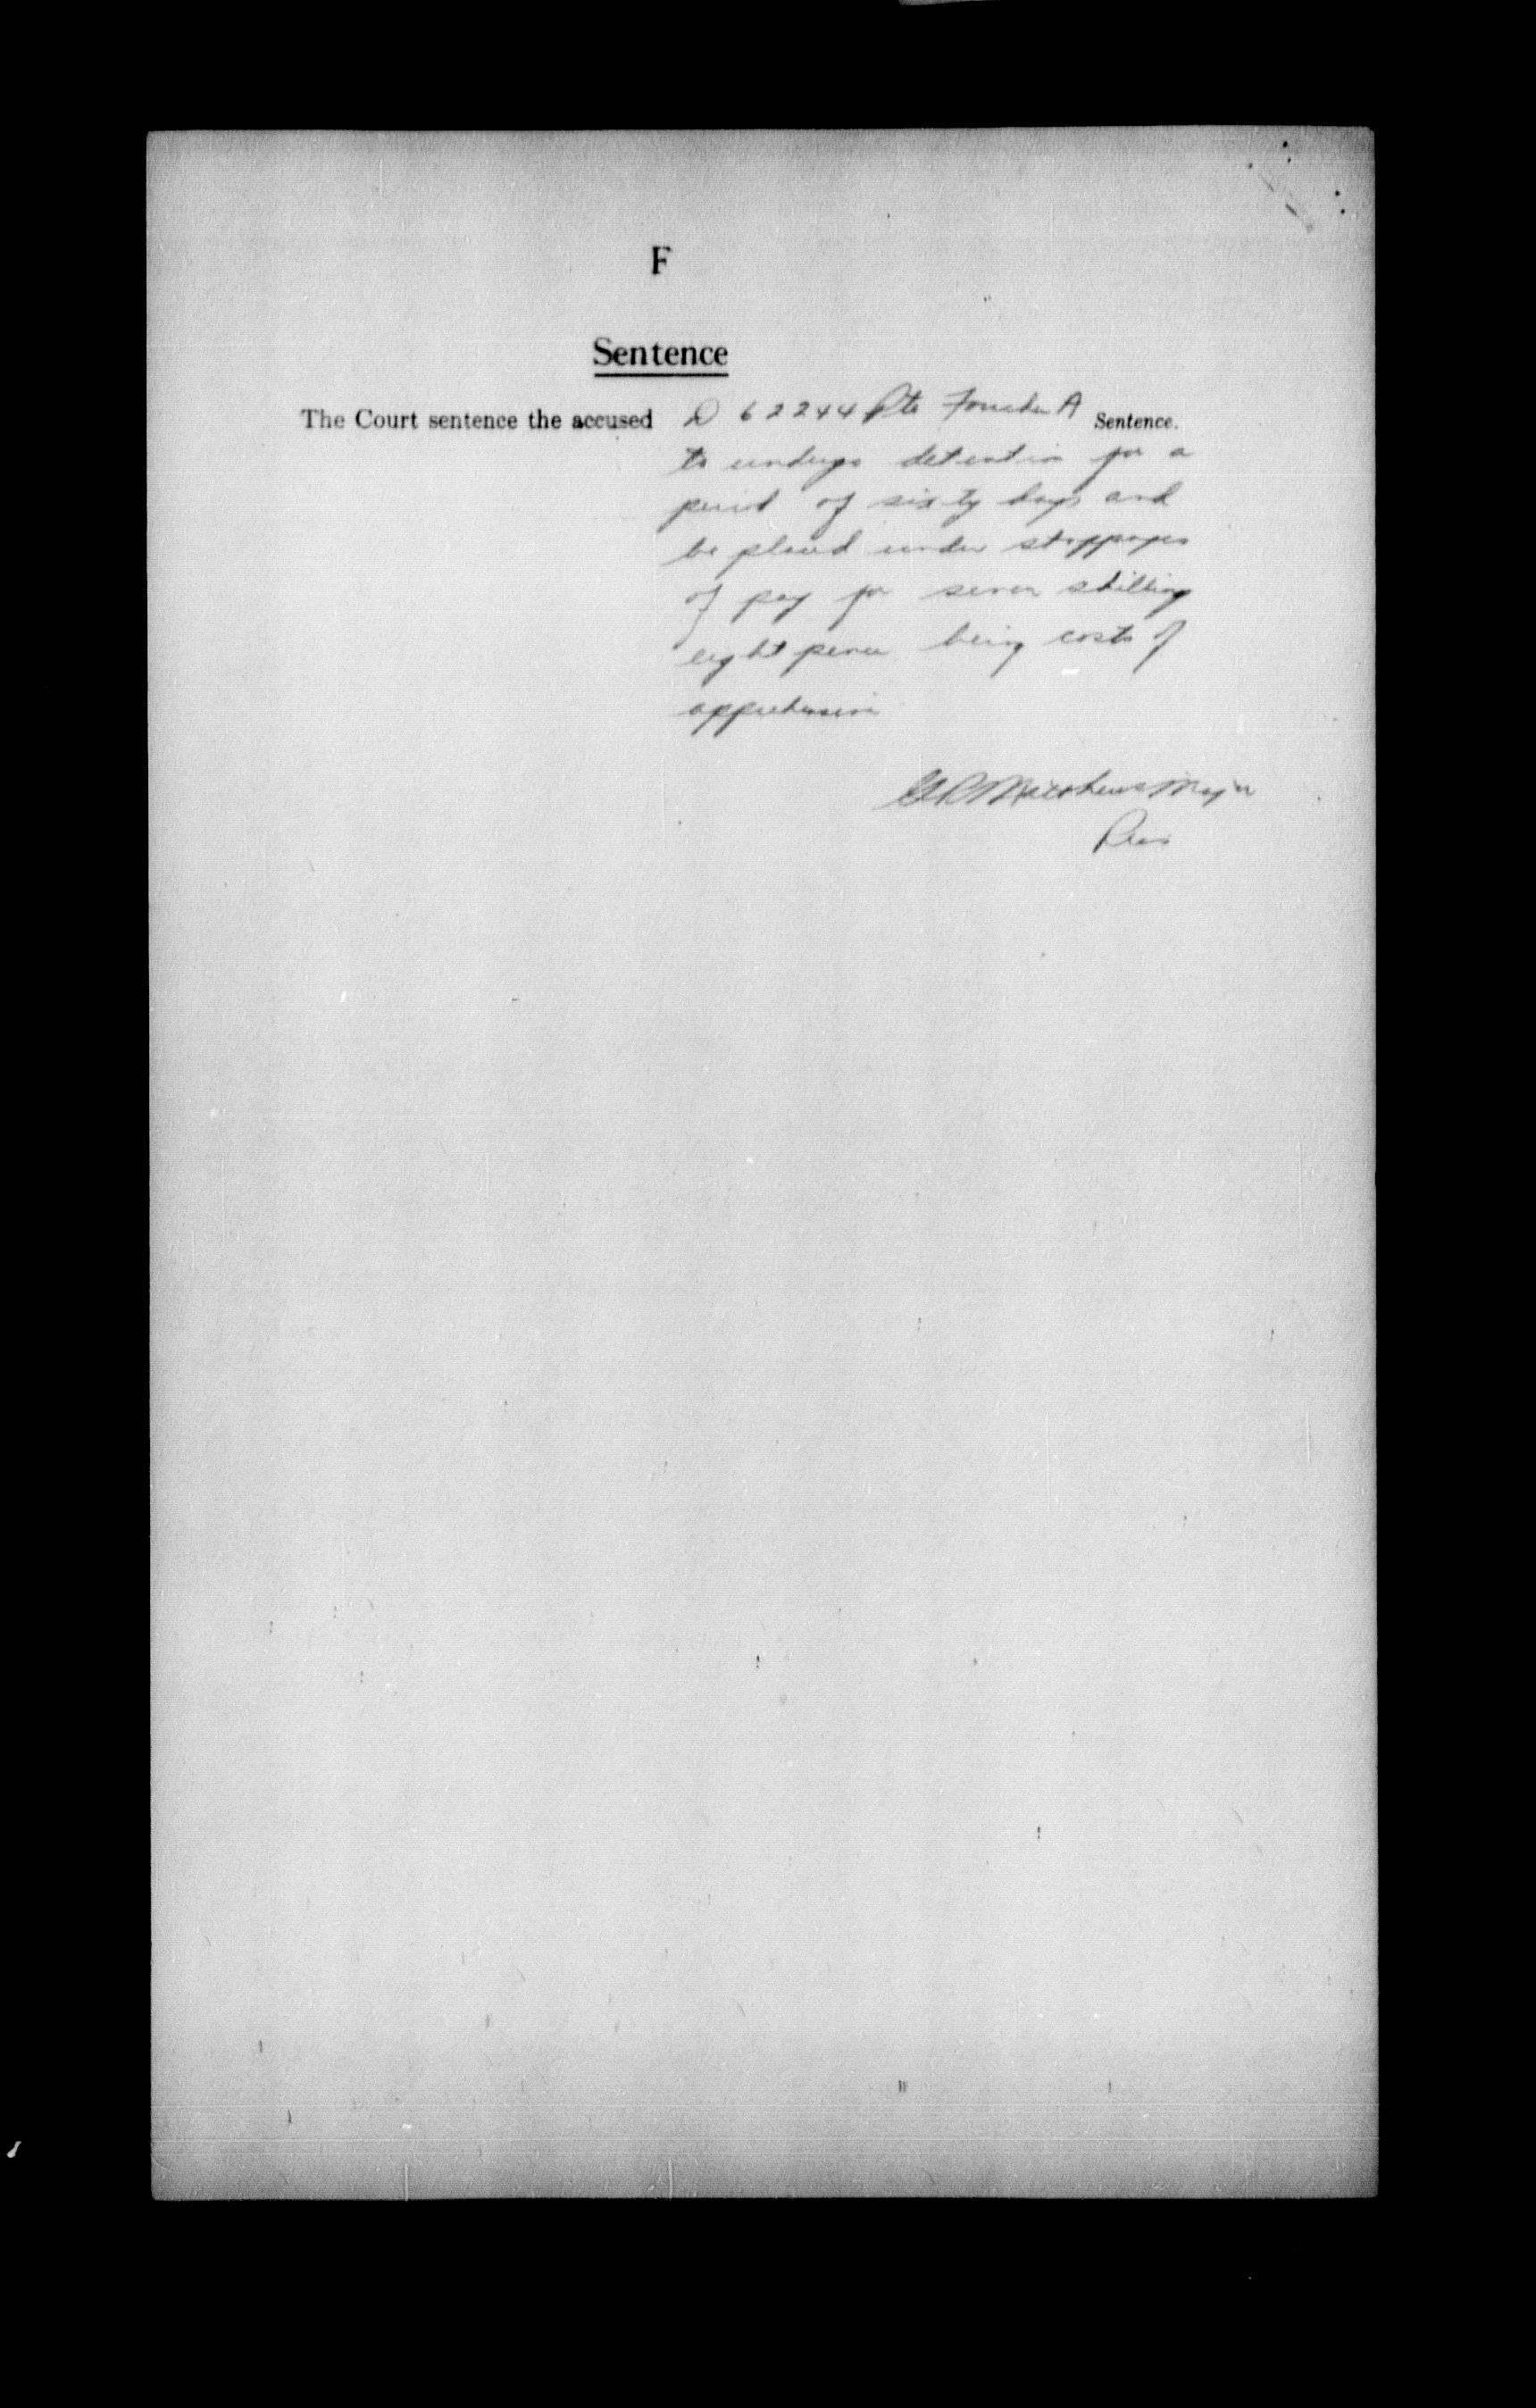 F
Sentence
The Court sentence the accused D 62244 Pte Foucher A Sentence.
to undergo detention for a
period of sixty days and
be placed under stoppages
of pay for seven shillings
eight pence being costs of
apprehension
Matthews Major
Pres